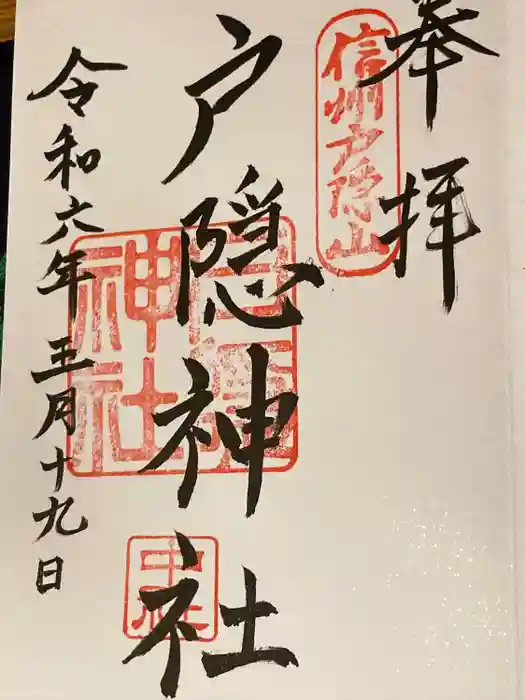 奉拝
信州戸隠山
戸隠神社
戸隠
神社
中社
令和六年 五月十九日